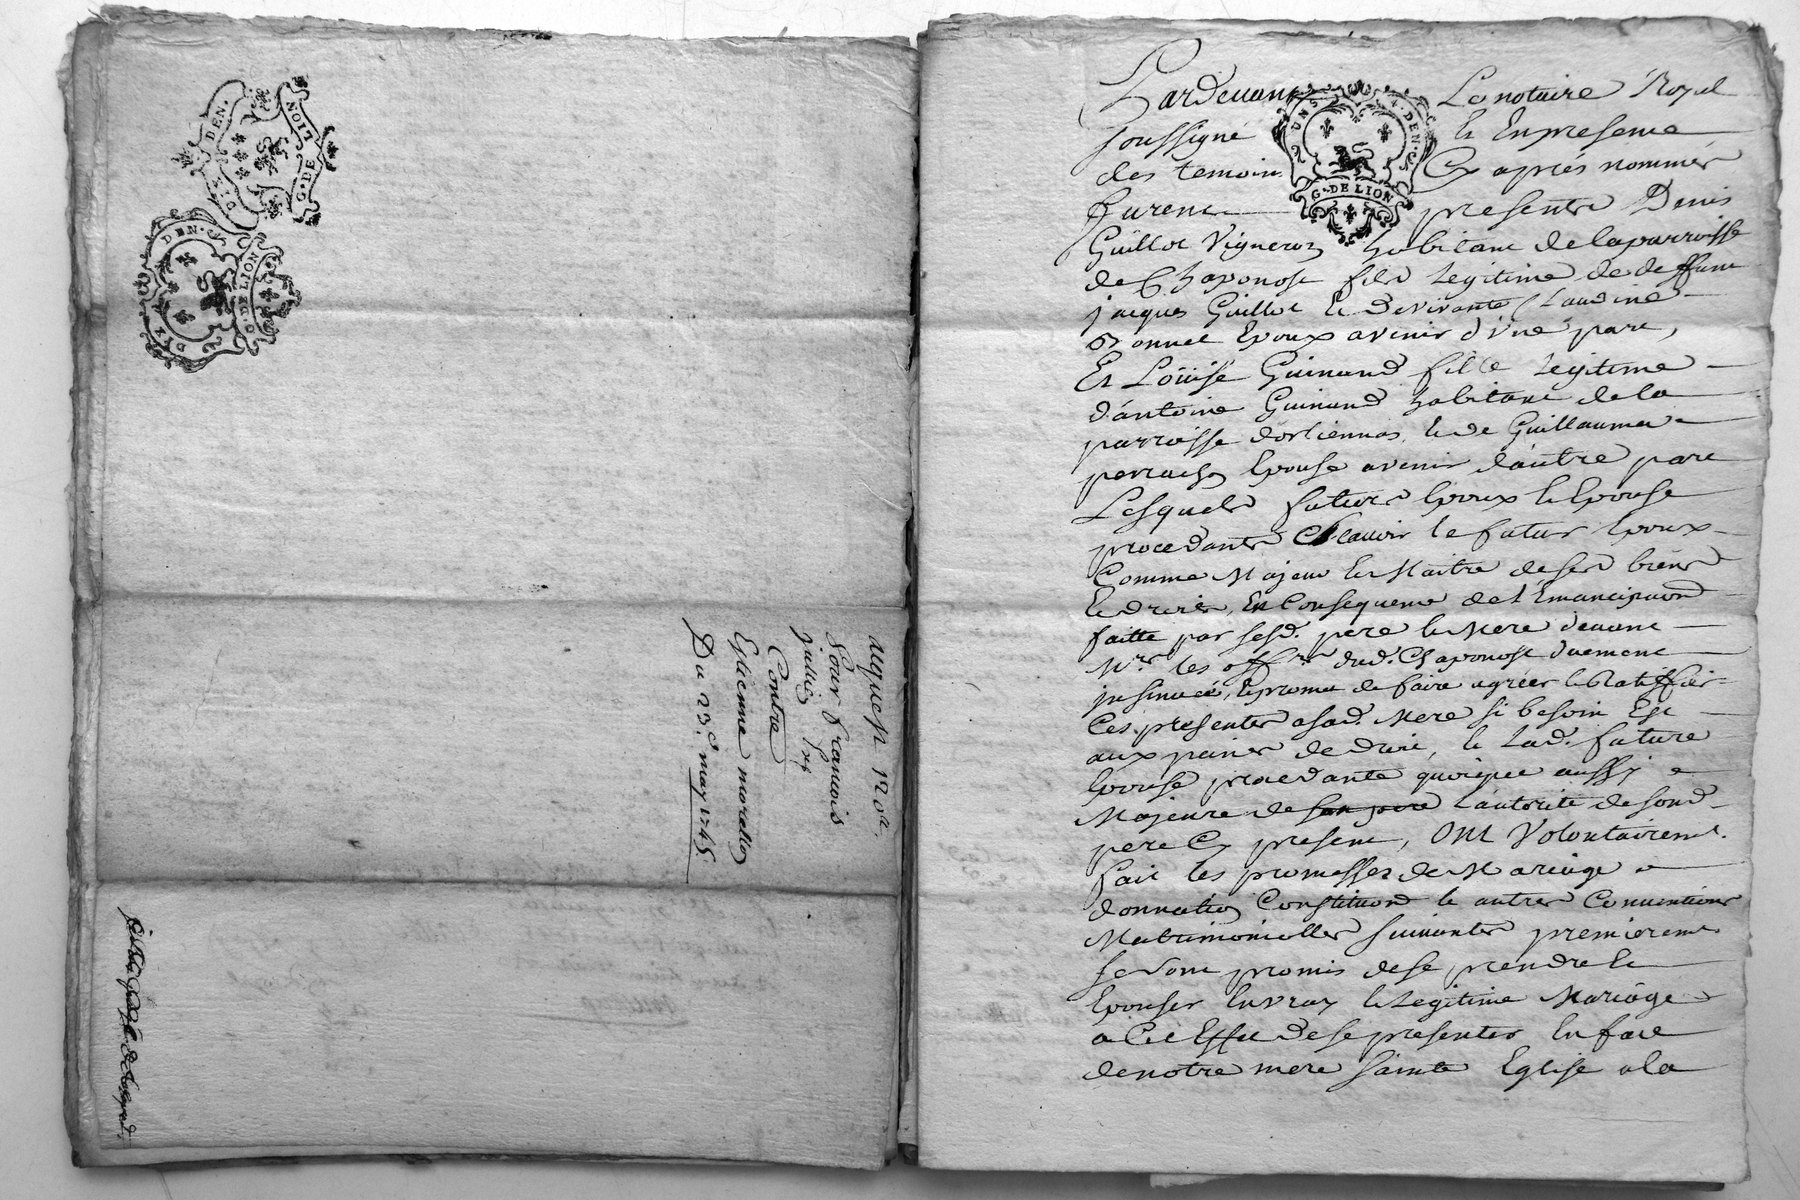 DEN.
G. DE LION
DEN.
G. DE LION
acquest 120ll
Pour francois
Contre
Estienne morellon
Du 23e may 1745.
Pardevant Le notaire Royal
soussigné et En presence
des temoins Cy aprés nommés
furent presents Denis
Guillot Vigneron habitant de la parroisse
de Chaponost fils Legitime de deffunt
jacques Guillot et de vivante Claudine
Bonnet Epoux avenir d'Une part,
Et Loüise Guinand fille Legitime
d'antoine Guinand habitant de la
parroisse d'orliennas, et de Guillaume
perrachon Epouse avenir d'autre part
Lesquels futurs Epoux et Epouse
procedants Scavoir le futur Epoux
Comme Majeur et Maitre de ses biens
et droits, En Consequence de l'Emancipaon
faitte par sesd. pere et Mere devant
Mrs les offrs dud. Chaponost duement
jnsinuée, et promet de faire agreer et Ratiffier
Ces presentes a sad. Mere si besoin Est
aux peines de droit, et Lad. future
Epouse procedante quoique aussy
Majeure de son pere L'autorité de sond.
pere Cy present, Ont Volontairemt
fait les promesses de Mariage
donnation Constitution et autres Conventions
Matrimonialles suivantes premieremt
se sont promis de se prendre et
Epouser En vray et Legitime Mariage
a Cet Effet de se presenter En face
de notre mere Sainte Eglise a la
UNS 4. DEN.
G. DE LION